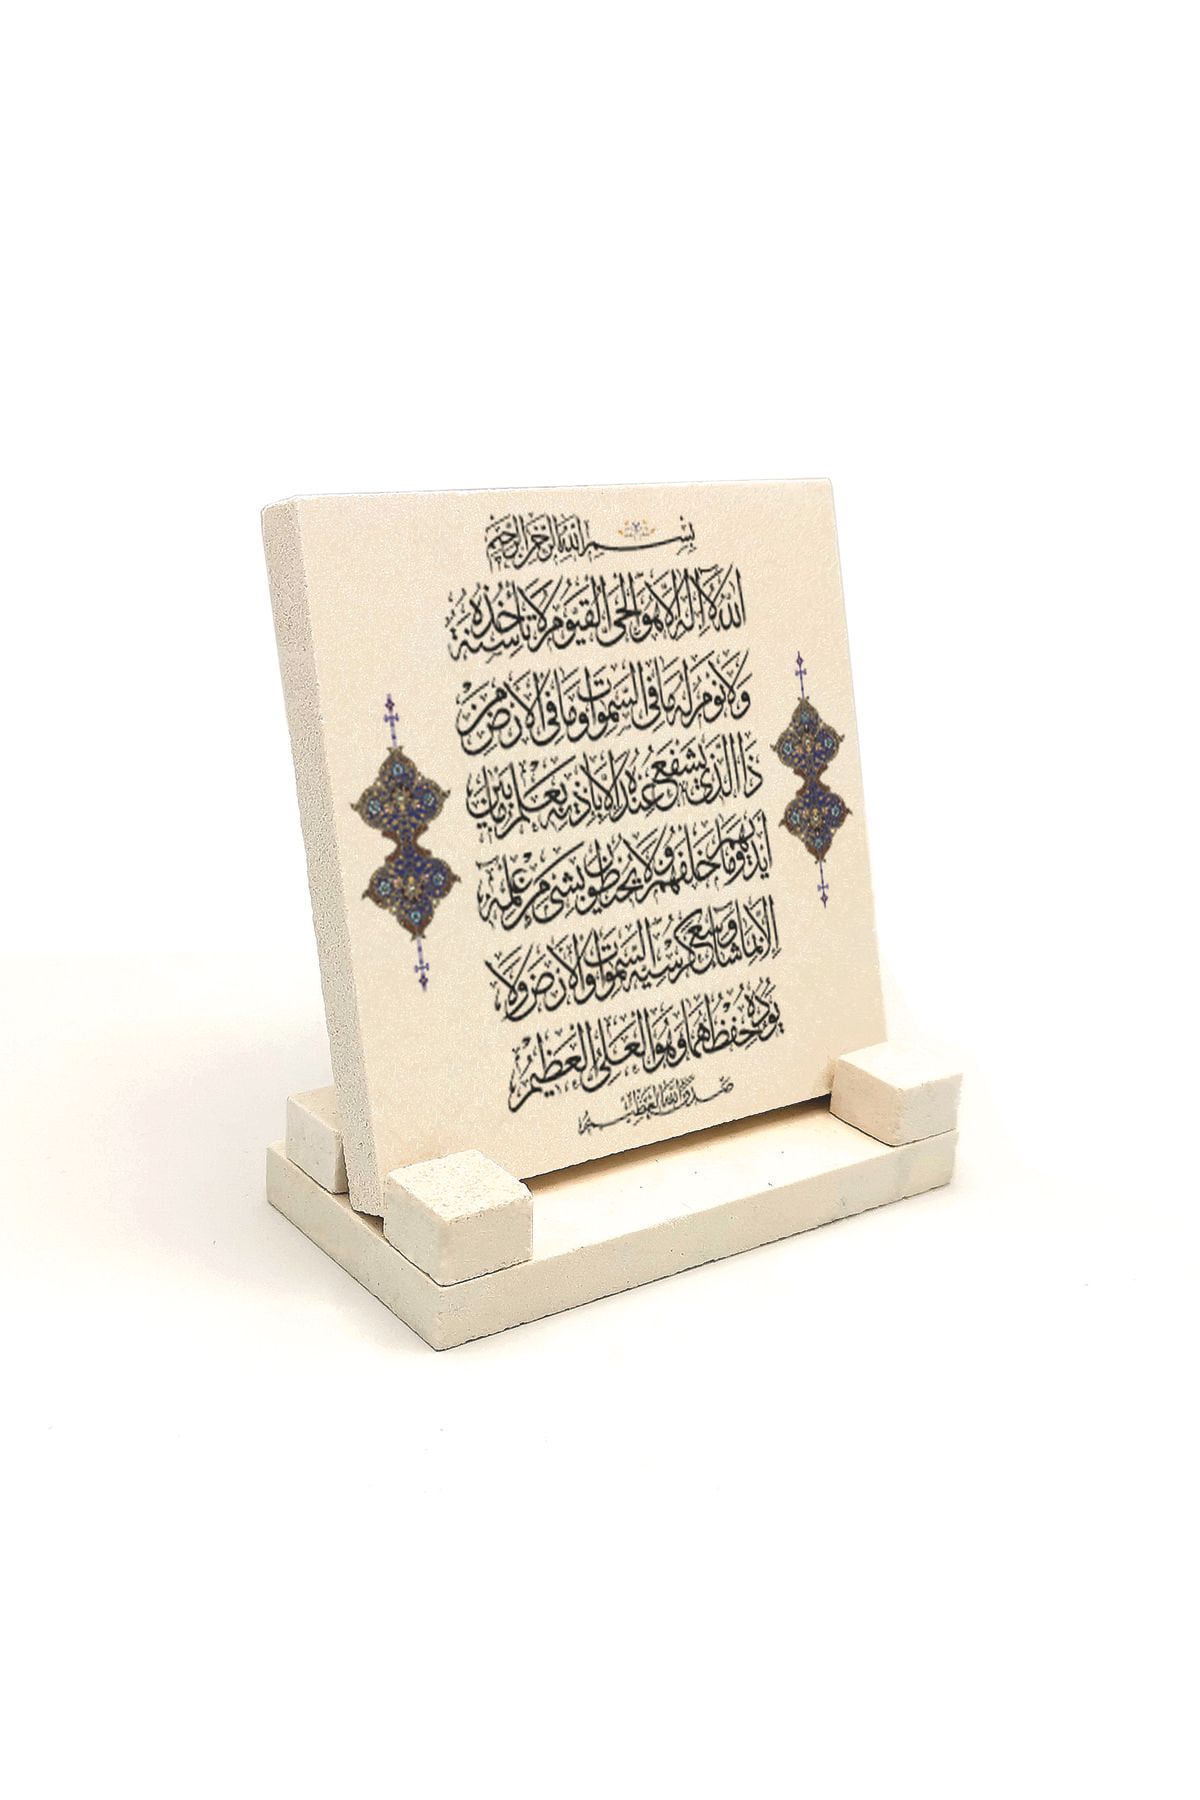 بسم الله الرحمن الرحيم
الله لا اله الا هو الحي القيوم لا تأخذه سنة
ولا نوم له ما في السموات وما في الارض من
ذا الذي يشفع عنده الا باذنه يعلم ما بين
ايديهم وما خلفهم ولا يحيطون بشئ من علمه
الا بما شاء وسع كرسيه السموات والارض ولا
يؤده حفظهما وهو العلي العظيم
صدق الله العظيم